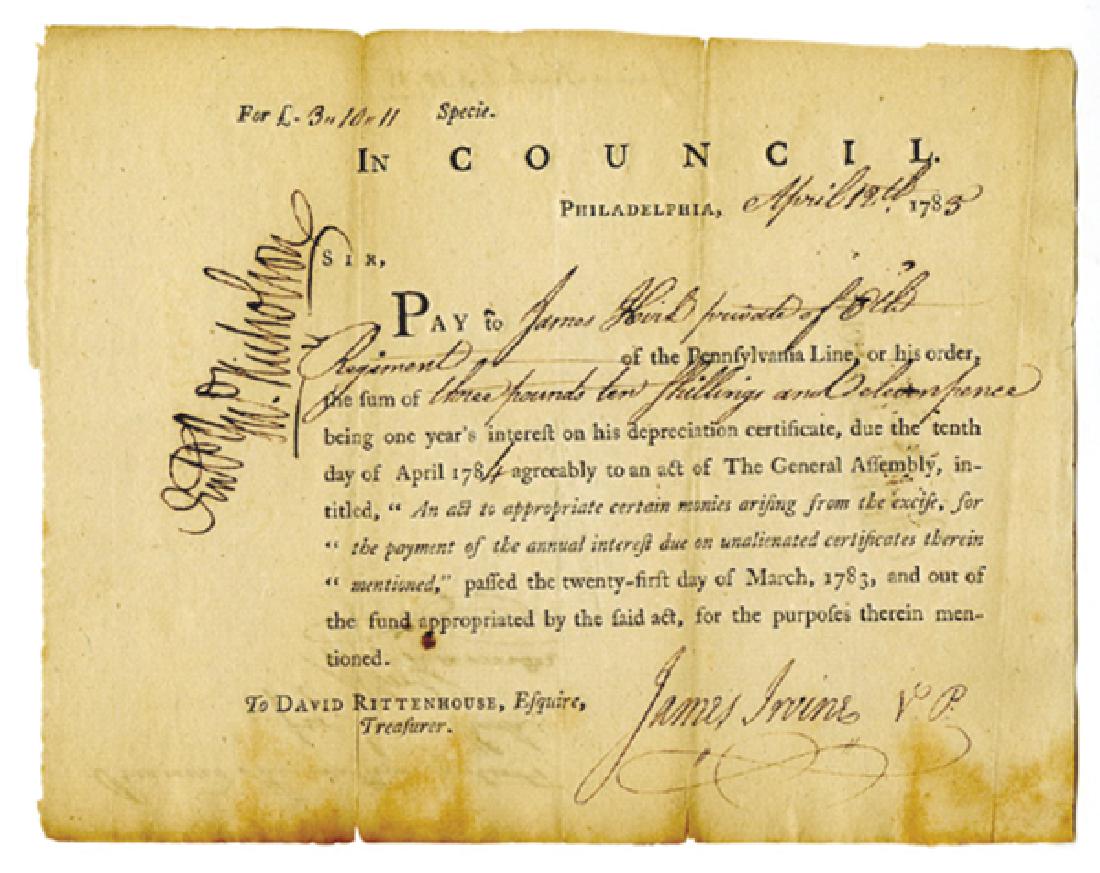 For £. 3 " 10 " 11 Specie.
IN COUNCIL.
PHILADELPHIA, April 12th. 1783
SIR,
PAY to James Kirk private of 8th
Regiment of the Pennſylvania Line, or his order,
the ſum of three pounds ten Shillings and Elevenpence
being one year's intereſt on his depreciation certificate, due the tenth
day of April 1784 agreeably to an act of The General Aſſembly, in-
titled, “ An act to appropriate certain monies ariſing from the exciſe, for
“ the payment of the annual intereſt due on unalienated certificates therein
“ mentioned,” paſſed the twenty-firſt day of March, 1783, and out of
the fund appropriated by the ſaid act, for the purpoſes therein men-
tioned.
To DAVID RITTENHOUSE, Eſquire,
Treaſurer.
James Irvine V P.
Jno. Nicholson